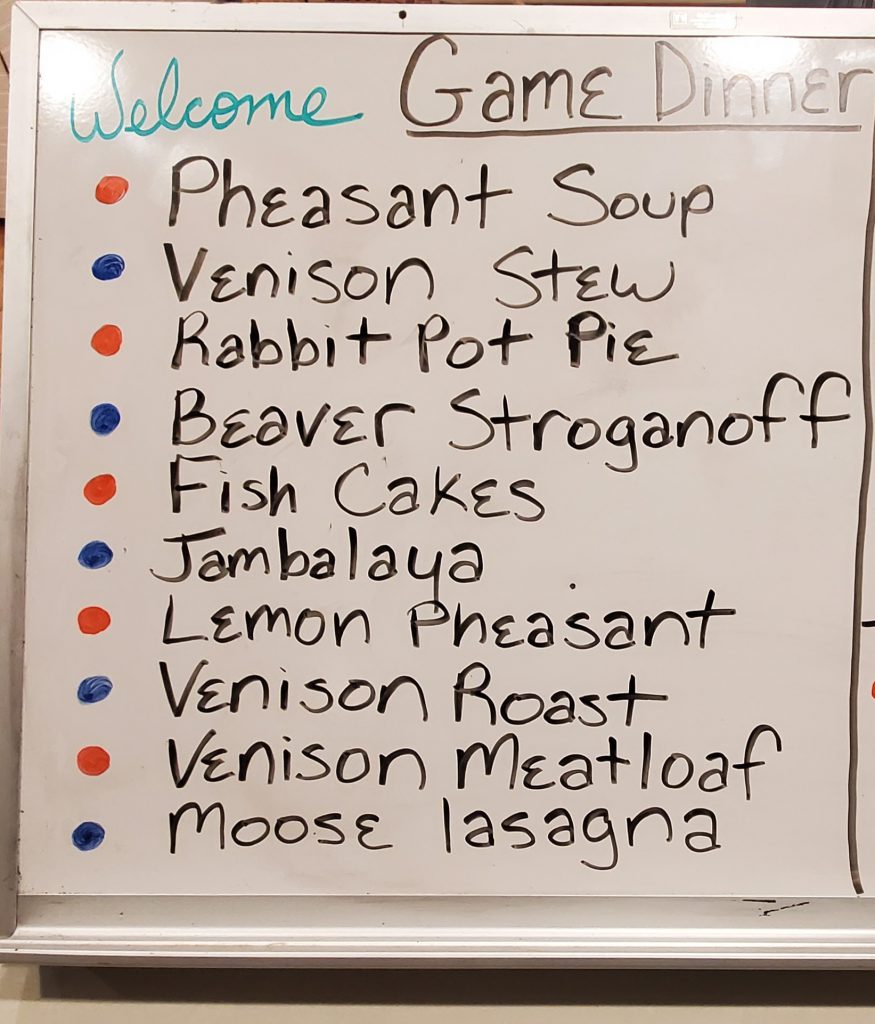 Welcome Game Dinner
Pheasant Soup
Venison Stew
Rabbit Pot Pie
Beaver Stroganoff
Fish Cakes
Jambalaya
Lemon Pheasant
Venison Roast
Venison Meatloaf
Moose lasagna